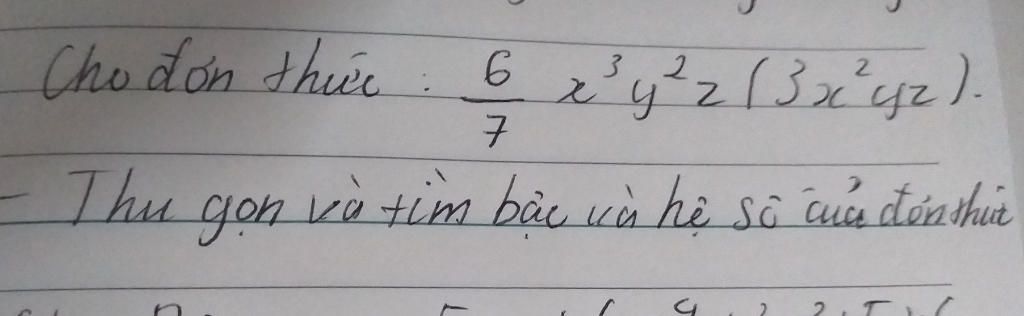 Cho đơn thức : 6/7 x³y²z(3x²yz).
- Thu gọn và tìm bậc và hệ số của đơn thức